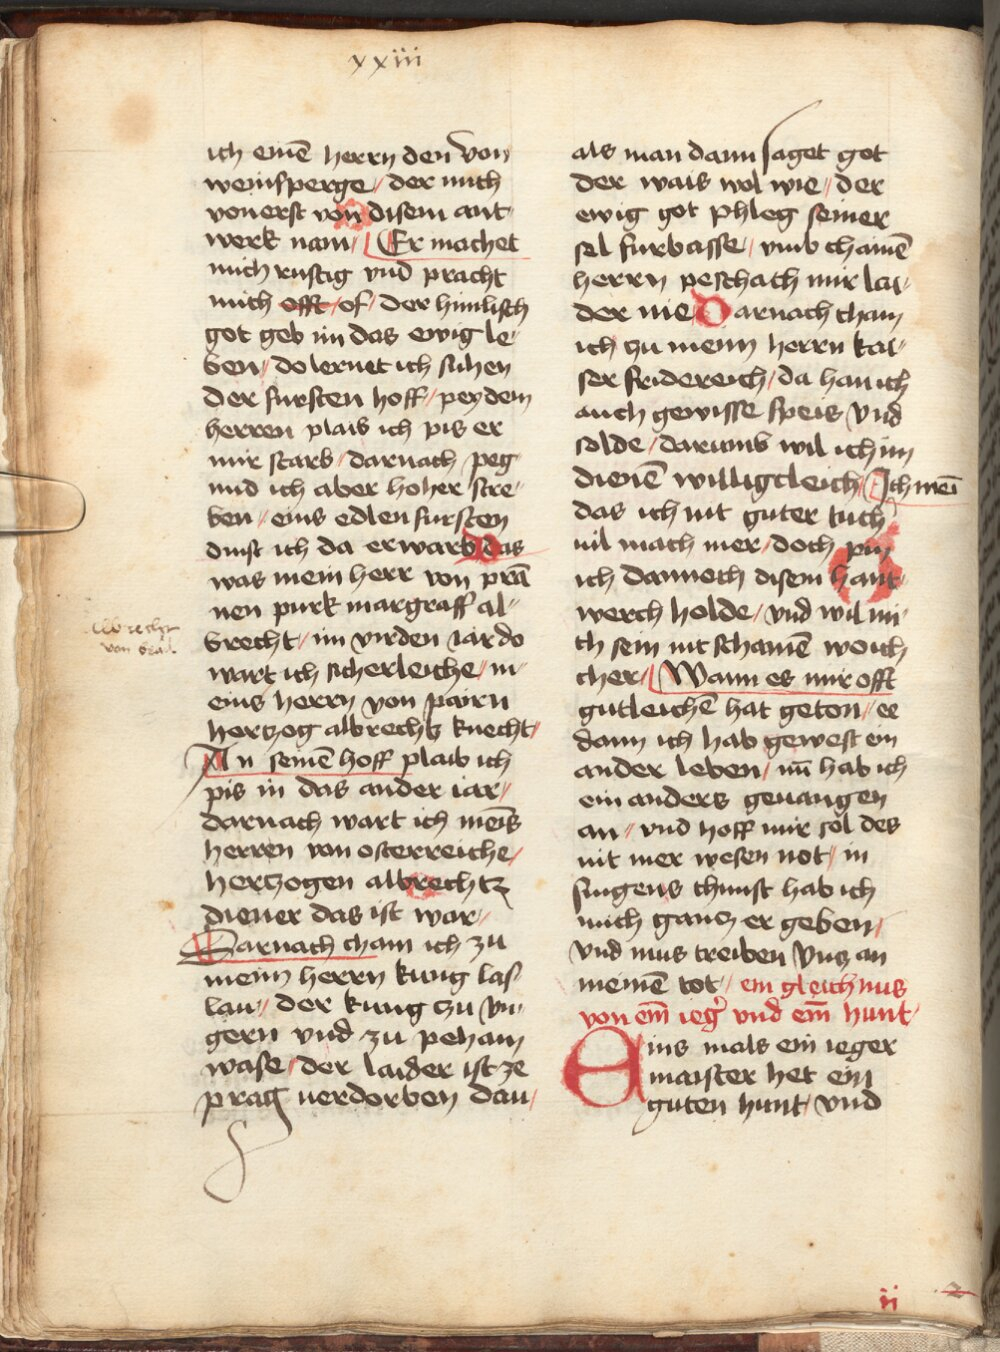 xxiii
ich einē herrn den von
weinsperge / der mich
von erst von disem ant
werk nam / Er machet
mich rustig vnd pracht
mich offt / of / der himlisch
got geb im das ewig le-
ben / do lernet ich suhen
der fursten hoff / pey dem
herren plaib ich pis er
mir starb / darnach / peg
und ich aber hoher stre-
ben / eins edlen fursten
dinst ich da erwarb das
was mein herr von prā
nen purk margraff al-
brecht / im virden iar do
wart ich sicherleiche / m-
eins herrn von pairn
hertzog albrechtz knecht /
An seinē hoff plaib ich
pis in das ander iar /
darnach wart ich meīs
herren von osterreiche /
hertzogen albrechtz
diener das ist war /
Darnach cham ich zu
meim herrn kung las-
lau / der kung zu vn-
gern vnd zu peham
wase / der laider ist ze
prag uerdorben dau /
als man dann saget got
der wais wol wie / der
ewig got phleg seiner
sel furbasse / vmb chainē
herrn peschach mir lai-
der nie Darnach cham
ich zu meim herrn kai-
ser fridereich / da han ich
auch gewisse speis vnd
solde / darumb wil ich im
dienē willigcleich / Ich meī
das ich nit guter tuch
vil mach mer / doch pin
ich dannoch disem hant-
werch holde / vnd wil mi-
ch sein nit schamē woich
cher / Wann es mir offt
gutleichē hat geton / ee
dann ich hab gewest ein
ander leben / nū hab ich
ein anders geuangen
an / vnd hoff mir sol des
nit mer wesen not / in
singens chunst hab ich
mich gancz er geben /
vnd mus treiben vncz an
meinē tot / ein gleichnus
von eim̄ ieg̉ vnd eim̄ hunt /
Eins mals ein ieger
maister het ein
guten hunt / vnd
Albrecht
ii